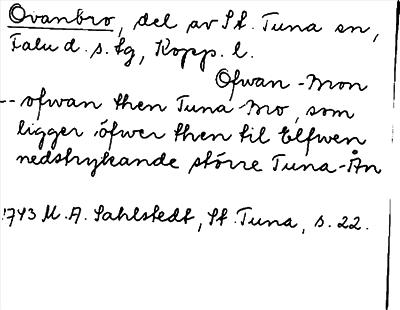 Ovanbro, del av St. Tuna sn,
Falu d. s. lg, Kopp. l.
Ofwan-Mon
-- ofwan then Tuna-Mo, som
ligger öfwer then til Elfwen
nedstrykande större Tuna-Ån
1743 M. A. Sahlstedt, St. Tuna, s. 22.